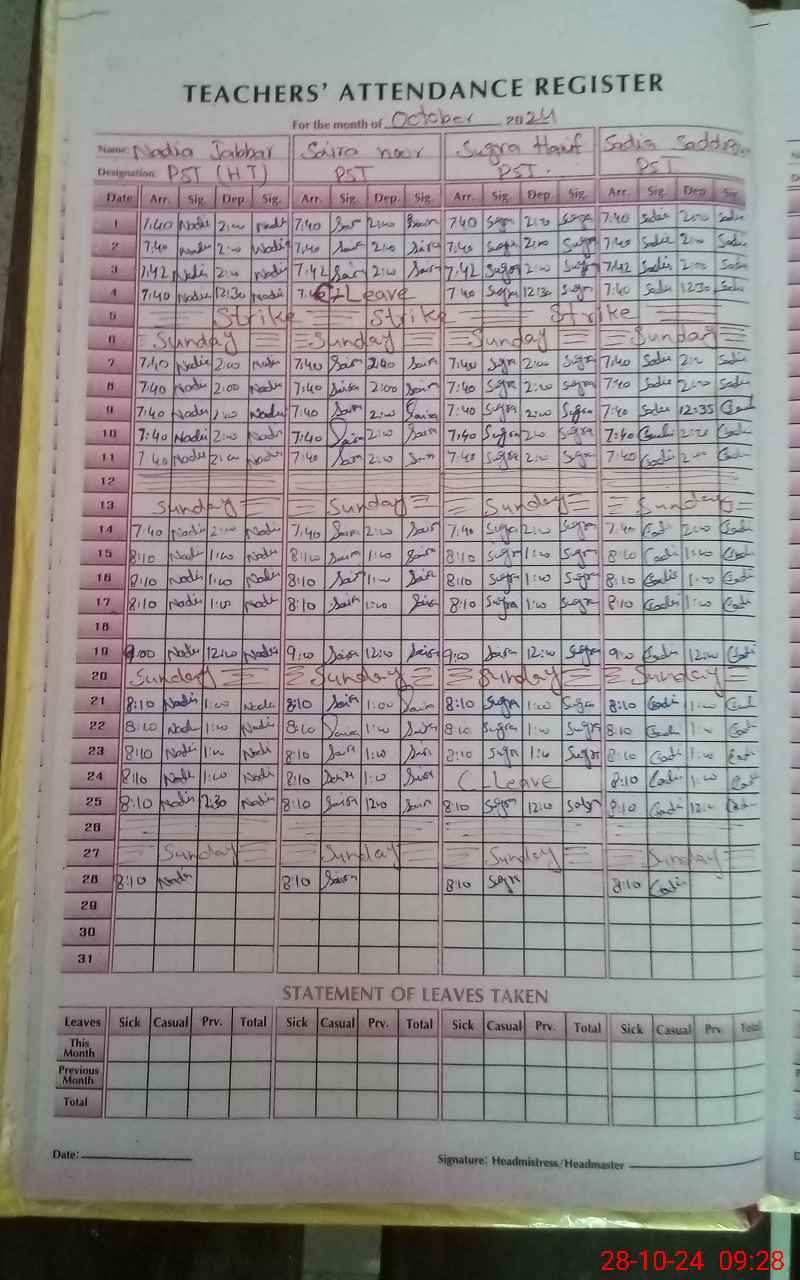 TEACHERS' ATTENDANCE REGISTER
For the month of October 2024
Name: Nadia Jabbar Saira noor Sugra Hanif Sadia Saddiq
Designation: PST (HT) PST PST. PST
Date Arr. Sig. Dep. Sig. Arr. Sig. Dep. Sig. Arr. Sig. Dep. Sig. Arr. Sig. Dep. Sig.
1 7:40 Nadia 2:00 Nadia 7:40 Sair 2:00 Sair 7:40 Sugra 2:00 Sugra 7:40 Sadia 2:00 Sadia
2 7:40 Nadia 2:00 Nadia 7:40 Sair 2:00 Saira 7:40 Sugra 2:00 Sugra 7:40 Sadia 2:00 Sadia
3 7:42 Nadia 2:00 Nadia 7:42 Sair 2:00 Sair 7:42 Sugra 2:00 Sugra 7:42 Sadia 2:00 Sadia
4 7:40 Nadia 12:30 Nadia 7:4 C-Leave 7:40 Sugra 12:30 Sugra 7:40 Sadia 12:30 Sadia
5 Strike Strike Strike
6 Sunday Sunday Sunday Sunday
7 7:40 Nadia 2:00 Nadia 7:40 Sair 2:00 Saira 7:40 Sugra 2:00 Sugra 7:40 Sadia 2:00 Sadia
8 7:40 Nadia 2:00 Nadia 7:40 Saira 2:00 Sair 7:40 Sugra 2:00 Sugra 7:40 Sadia 2:00 Sadia
9 7:40 Nadia 2:00 Nadia 7:40 Sair 2:00 Saira 7:40 Sugra 2:00 Sugra 7:40 Sadia 12:35
10 7:40 Nadia 2:00 Nadia 7:40 Saira 2:00 Saira 7:40 Sugra 2:00 Sugra 7:40 2:00
11 7:40 Nadia 2:00 Nadia 7:40 Sair 2:00 Sair 7:40 Sugra 2:00 Sugra 7:40 2:00
12
13 Sunday Sunday Sunday Sunday
14 7:40 Nadia 2:00 Nadia 7:40 Saira 2:00 Sair 7:40 Sugra 2:00 Sugra 7:40 2:00
15 8:10 Nadi 1:00 Nadi 8:10 Saira 1:00 Saira 8:10 Sugra 1:00 Sugra 8:10 1:00
16 8:10 Nadi 1:00 Nadi 8:10 Sair 1:00 Saira 8:10 Sugra 1:00 Sugra 8:10 1:00
17 8:10 Nadi 1:00 Nadi 8:10 Saira 1:00 Saira 8:10 Sugra 1:00 Sugra 8:10 1:00
18
19 9:00 Nadia 12:00 Nadia 9:00 Saira 12:00 Saira 9:00 Saira 12:00 Sugra 9:00 12:00
20 Sunday Sunday Sunday Sunday
21 8:10 Nadi 1:00 Nadi 8:10 Saira 1:00 Saira 8:10 Sugra 1:00 Sugra 8:10 1:00
22 8:10 Nadi 1:00 Nadi 8:10 Saira 1:00 Saira 8:10 Sugra 1:00 Sugra 8:10 1:00
23 8:10 Nadi 1:00 Nadi 8:10 Saira 1:00 Sair 8:10 Sugra 1:00 Sugra 8:10 1:00
24 8:10 Nadi 1:00 Nadi 8:10 Saira 1:00 Saira C-Leave 8:10 1:00
25 8:10 Nadia 2:30 Nadia 8:10 Saira 12:00 Sair 8:10 Sugra 12:00 8:10 12:00
26
27 Sunday Sunday Sunday Sunday
28 8:10 Nadi 8:10 Saira 8:10 Sugra 8:10
29
30
31
STATEMENT OF LEAVES TAKEN
Leaves Sick Casual Prv. Total Sick Casual Prv. Total Sick Casual Prv. Total Sick Casual Prv. Total
This Month
Previous Month
Total
Date: Signature: Headmistress/Headmaster
28-10-24 09:28